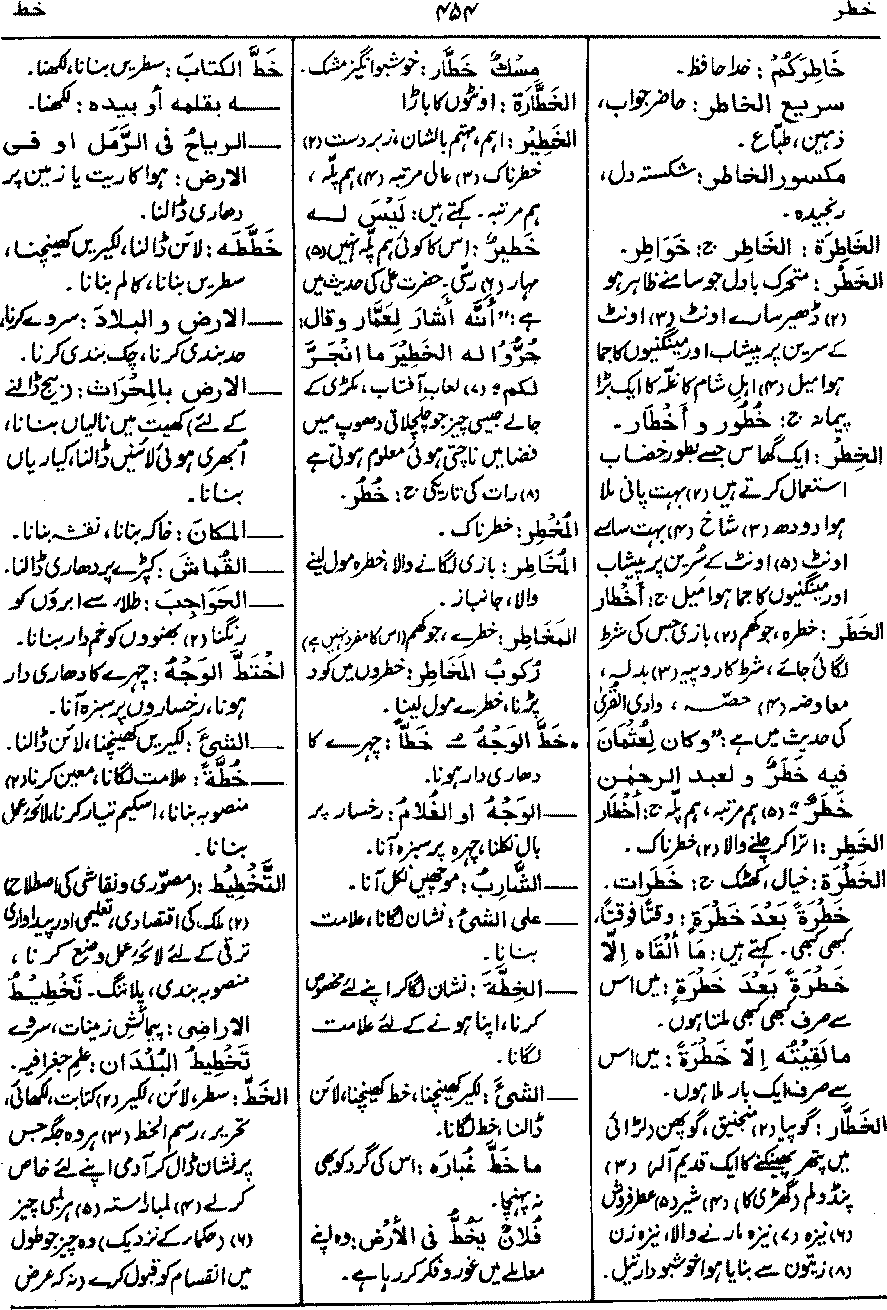 خطر
۴۵۴
خط
خَاطِرَكُمْ : خدا حافظ۔
سريع الخاطر: حاضر جواب،
ذہین، طبّاع۔
مكسور الخاطر: شکستہ دل،
رنجیدہ۔
الخَاطِرَة : الخاطر ج: خَوَاطِر۔
الخَطْرُ : متحرک بادل جو سامنے ظاہر ہو
(۲) ڈھیر سارے اونٹ (۳) اونٹ
کے سرین پر پیشاب اور مینگنیوں کا جما
ہوا میل (۴) اہل شام کا غلّہ کا ایک بڑا
پیمانہ ج: خُطُور و أَخْطَار۔
الخِطْرُ : ایک گھاس جسے بطور خضاب
استعمال کرتے ہیں (۲) بہت پانی ملا
ہوا دودھ (۳) شاخ (۴) بہت سارے
اونٹ (۵) اونٹ کے سُرین پر پیشاب
اور مینگنیوں کا جما ہوا میل ج: أَخْطار
الخَطَر: خطرہ، جوکھم (۲) بازی جس کی شرط
لگائی جائے، شرط کا روپیہ (۳) بدلہ،
معاوضہ (۴) حصّہ ، وادی القریٰ
کی حدیث میں ہے: "وكان لِعُثْمَانَ
فيه خَطَرٌ و لعبد الرحمٰن
خَطَرٌ" (۵) ہم مرتبہ، ہم پلّہ ج: أَخْطَار
الخَطِر: اترا کر چلنے والا (۲) خطرناک۔
الخَطْرَة: خیال، کھٹک ج: خَطَرات۔
خَطْرَةً بَعْدَ خَطْرَةٍ: وقتاً فوقتاً،
کبھی کبھی۔ کہتے ہیں: مَا أَلْقَاه إلّا
خَطْرَةً بَعْدَ خَطْرَةٍ: میں اس
سے صرف کبھی کبھی ملتا ہوں۔
مالَقِيْتُه إلّا خَطْرَةً: میں اس
سے صرف ایک بار ملا ہوں۔
الخَطَّار: گوپیا (۲) منجنیق، گوپھن (لڑائی
میں پتھر پھینکنے کا ایک قدیم آلہ) (۳)
پنڈولم (گھڑی کا) (۴) شیر (۵) عطر فروش
(۶) نیزہ (۷) نیزہ مارنے والا، نیزہ زن
(۸) زیتون سے بنایا ہوا خوشبو دار تیل۔
مِسْكٌ خَطَّار: خوشبو انگیز مشک۔
الخَطَّارَة : اونٹوں کا باڑا
الخَطِيْرُ: اہم، مہتم بالشان، زبردست (۲)
خطرناک (۳) عالی مرتبہ (۴) ہم پلّہ،
ہم مرتبہ۔ کہتے ہیں: لَيْسَ لـه
خَطِيرٌ: اس کا کوئی ہم پلّہ نہیں (۵)
مہار (۶) رسّی۔ حضرت علی کی حدیث میں
ہے: "أَنَّه أشَارَ لِعَمَّار وقال:
جُرُّوا له الخَطِيْرَ ما انْجَرَّ
لكم" (۷) لعاب آفتاب، مکڑی کے
جالے جیسی چیز جو چلچلاتی دھوپ میں
فضا میں ناچتی ہوئی معلوم ہوتی ہے
(۸) رات کی تاریکی ج: خُطُر۔
المُخْطِر: خطرناک۔
المُخَاطِر: بازی لگانے والا، خطرہ مول لینے
والا، جانباز۔
المَخَاطِر: خطرے، جوکھم (اس کا مفرد نہیں ہے)
رُكوبُ المَخَاطِر: خطروں میں کود
پڑنا، خطرے مول لینا۔
• خَطَّ الوَجْهُ ـُ خَطّاً: چہرے کا
دھاری دار ہونا۔
ــ الوَجْهُ او الغُلَامُ: رخسار پر
بال نکلنا، چہرہ پر سبزہ آنا۔
ــ الشَّارِبُ: مونچھیں نکل آنا۔
ــ على الشئِ: نشان لگانا، علامت
بنانا۔
ــ الخِطَّةَ: نشان لگا کر اپنے لئے مخصوص
کرنا، اپنا ہونے کے لئے علامت
لگانا۔
ــ الشئَ: لکیر کھینچنا، خط کھینچنا، لائن
ڈالنا، خط لگانا۔
ما خَطَّ غُبارَه : اس کی گرد کو بھی
نہ پہنچا۔
فُلَانٌ يَخُطُّ في الأَرْضِ: وہ اپنے
معاملے میں غور و فکر کر رہا ہے۔
خَطَّ الكتابَ: سطریں بنانا، لکھنا۔
ــه بقلمه أو بيده: لکھنا۔
ــ الرياحُ في الرَّمل او في
الارض: ہوا کا ریت یا زمین پر
دھاری ڈالنا۔
خَطَّطَه: لائن ڈالنا، لکیریں کھینچنا،
سطریں بنانا، کالم بنانا۔
ــ الارضَ والبلادَ: سروے کرنا،
حد بندی کرنا، چک بندی کرنا۔
ــ الارضَ بالمِحْرَاث: (بیج ڈالنے
کے لئے) کھیت میں نالیاں بنانا،
اُبھری ہوئی لائنیں ڈالنا، کیاریاں
بنانا۔
ــ المكانَ: خاکہ بنانا، نقشہ بنانا۔
ــ القُماشَ: کپڑے پر دھاری ڈالنا۔
ــ الحَوَاجِبَ: طلاء سے ابروں کو
رنگنا (۲) بھنووں کو خم دار بنانا۔
اخْتَطَّ الوَجْهُ: چہرے کا دھاری دار
ہونا، رخساروں پر سبزہ آنا۔
ــ الشئَ: لکیریں کھینچنا، لائن ڈالنا۔
ــ خُطَّةً: علامت لگانا، معین کرنا (۲)
منصوبہ بنانا، اسکیم تیار کرنا، لائحۂ عمل
بنانا۔
التَّخْطِيط: (مصوّری و نقاشی کی اصطلاح)
(۲) ملک کی اقتصادی، تعلیمی اور پیداواری
ترقی کے لئے لائحۂ عمل وضع کرنا،
منصوبہ بندی، پلاننگ۔ تَخْطِيطُ
الاراضى: پیمائش زمینات، سروے
تَخْطِيطُ البُلْدَان: علم جغرافیہ۔
الخَطّ: سطر، لائن، لکیر (۲) کتابت، لکھائی،
تحریر، رسم الخط (۳) ہر وہ جگہ جس
پر نشان ڈال کر آدمی اپنے لئے خاص
کرلے (۴) لمبا راستہ (۵) ہر لمبی چیز
(۶) (حکماء کے نزدیک) وہ چیز جو طول
میں انقسام کو قبول کرے (نہ کہ عرض